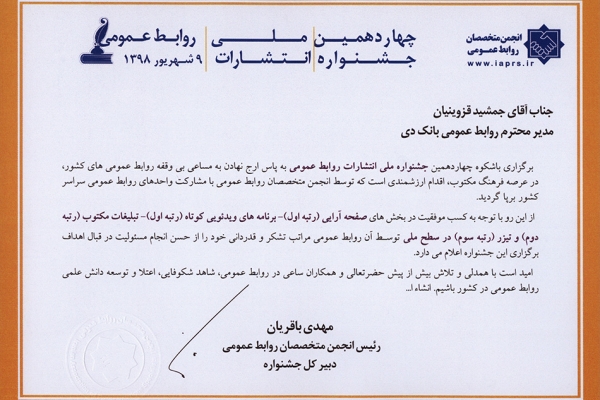 انجمن متخصصان
روابط عمومی
www.iaprs.ir
چهاردهمین ملی روابط عمومی
جشنواره انتشارات ۹ شهریور ۱۳۹۸
جناب آقای جمشید قزوینیان
مدیر محترم روابط عمومی بانک دی
برگزاری باشکوه چهاردهمین جشنواره ملی انتشارات روابط عمومی به پاس ارج نهادن به مساعی بی وقفه روابط عمومی های کشور،
در عرصه فرهنگ مکتوب، اقدام ارزشمندی است که توسط انجمن متخصصان روابط عمومی با مشارکت واحدهای روابط عمومی سراسر
کشور برپا گردید.
از این رو با توجه به کسب موفقیت در بخش های صفحه آرایی (رتبه اول)- برنامه های ویدئویی کوتاه (رتبه اول)- تبلیغات مکتوب (رتبه
دوم) و تیزر (رتبه سوم) در سطح ملی توسط آن روابط عمومی مراتب تشکر و قدردانی خود را از حسن انجام مسئولیت در قبال اهداف
برگزاری این جشنواره اعلام می دارد.
امید است با همدلی و تلاش بیش از پیش حضرتعالی و همکاران ساعی در روابط عمومی، شاهد شکوفایی، اعتلا و توسعه دانش علمی
روابط عمومی در کشور باشیم. انشاء ا...
مهدی باقریان
رئیس انجمن متخصصان روابط عمومی
دبیر کل جشنواره